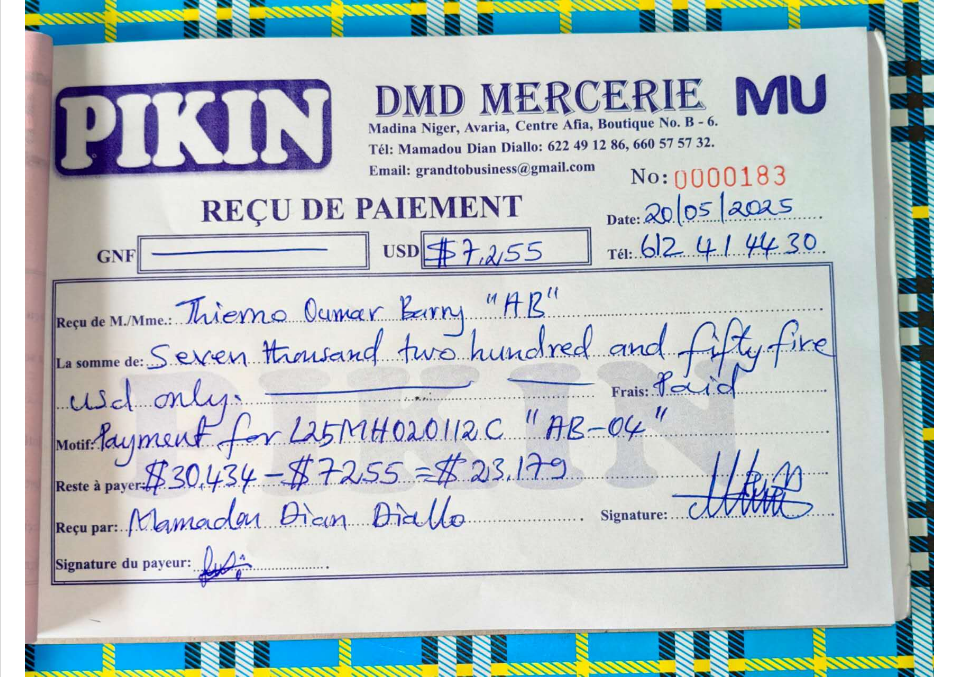 PIKIN
DMD MERCERIE
MU
Madina Niger, Avaria, Centre Afia, Boutique No. B - 6.
Tél: Mamadou Dian Diallo: 622 49 12 86, 660 57 57 32.
Email: grandtobusiness@gmail.com
No: 0000183
REÇU DE PAIEMENT
Date: 20/05/2025
GNF
USD $7,255
Tél: 612 41 44 30
Reçu de M./Mme.: Thierno Oumar Barry "AB"
La somme de: Seven thousand two hundred and fifty five
usd only.
Frais: Paid
Motif: Payment for L25MH020112C "AB-04"
Reste à payer: $30,434 - $7255 = $23,179
Reçu par: Mamadou Dian Diallo
Signature:
Signature du payeur:
PIKIN